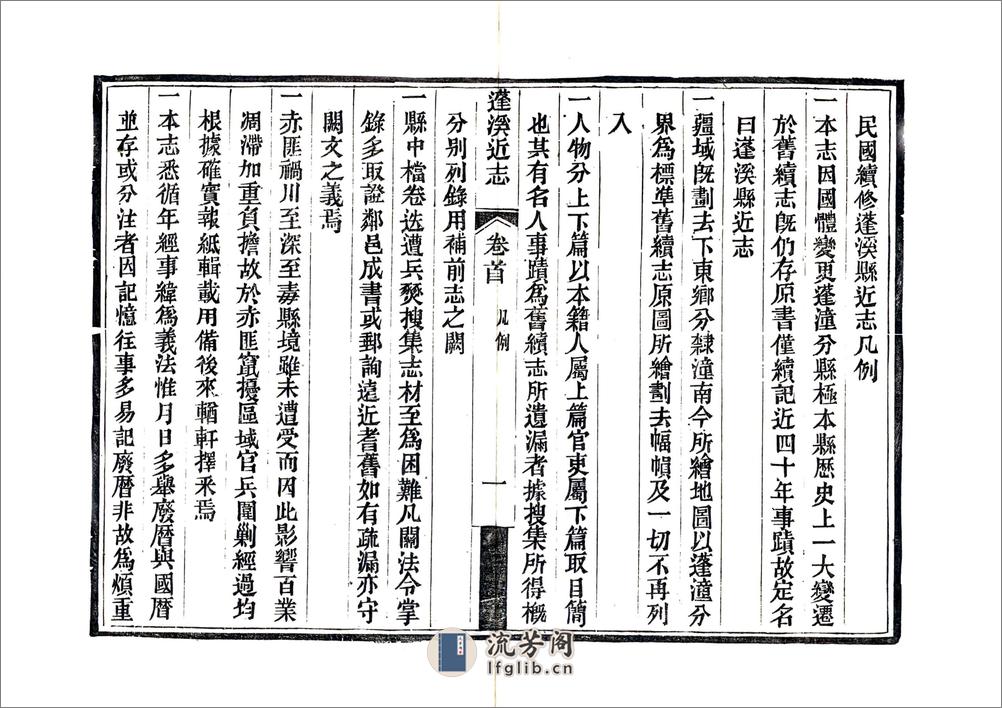 民國續修蓬溪縣近志凡例
一本志因國體變更蓬潼分縣極本縣歷史上一大變遷
於舊續志既仍存原書僅續記近四十年事蹟故定名
曰蓬溪縣近志
一疆域既劃去下東鄉分隸潼南今所繪地圖以蓬潼分
界爲標準舊續志原圖所繪劃去幅幀及一切不再列
入
一人物分上下篇以本籍人屬上篇官吏屬下篇取目簡
也其有名人事蹟爲舊續志所遺漏者據搜集所得概
蓬溪近志
卷首
凡例
一
分別列錄用補前志之闕
一縣中檔卷迭遭兵燹搜集志材至爲困難凡關法令掌
錄多取證鄰邑成書或郵詢遠近耆舊如有疏漏亦守
闕文之義焉
一赤匪禍川至深至毒縣境雖未遭受而因此影響百業
凋滯加重負擔故於赤匪竄擾區域官兵圍剿經過均
根據確實報紙輯載用備後來輶軒擇釆焉
一本志悉循年經事緯爲義法惟月日多舉廢曆與國曆
並存或分注者因記憶往事多易記廢曆非故爲煩重
流芳阁
lfglib.cn